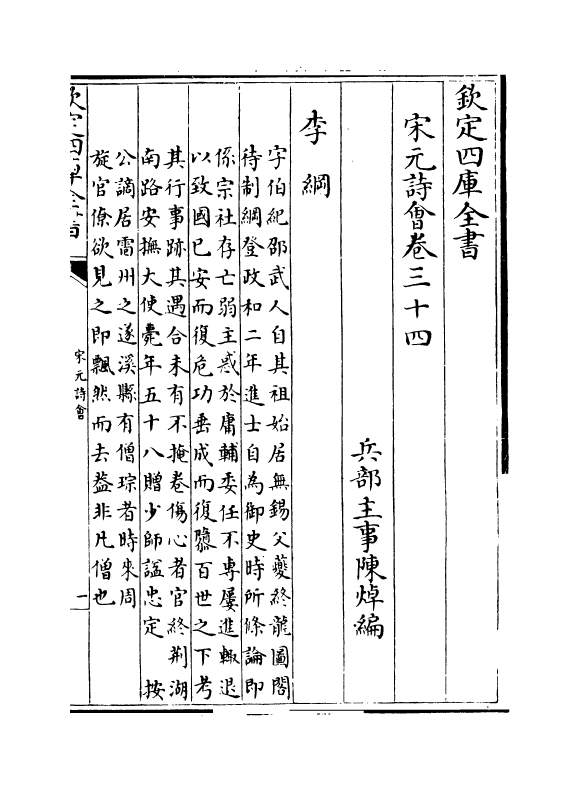 欽定四庫全書
宋元詩會卷三十四
兵部主事陳焯編
李綱
字伯紀邵武人自其祖始居無錫父夔終龍圖閣
待制綱登政和二年進士自為御史時所條論即
係宗社存亡弱主惑於庸輔委任不専屢進輙退
以致國已安而復危功垂成而復隳百世之下考
其行事跡其遇合未有不掩卷傷心者官終荆湖
南路安撫大使薨年五十八贈少師諡忠定 按
公謫居雷州之遂溪縣有僧琮者時來周
旋官僚欲見之即飄然而去葢非凡僧也
欽定四庫全書
宋元詩會
一